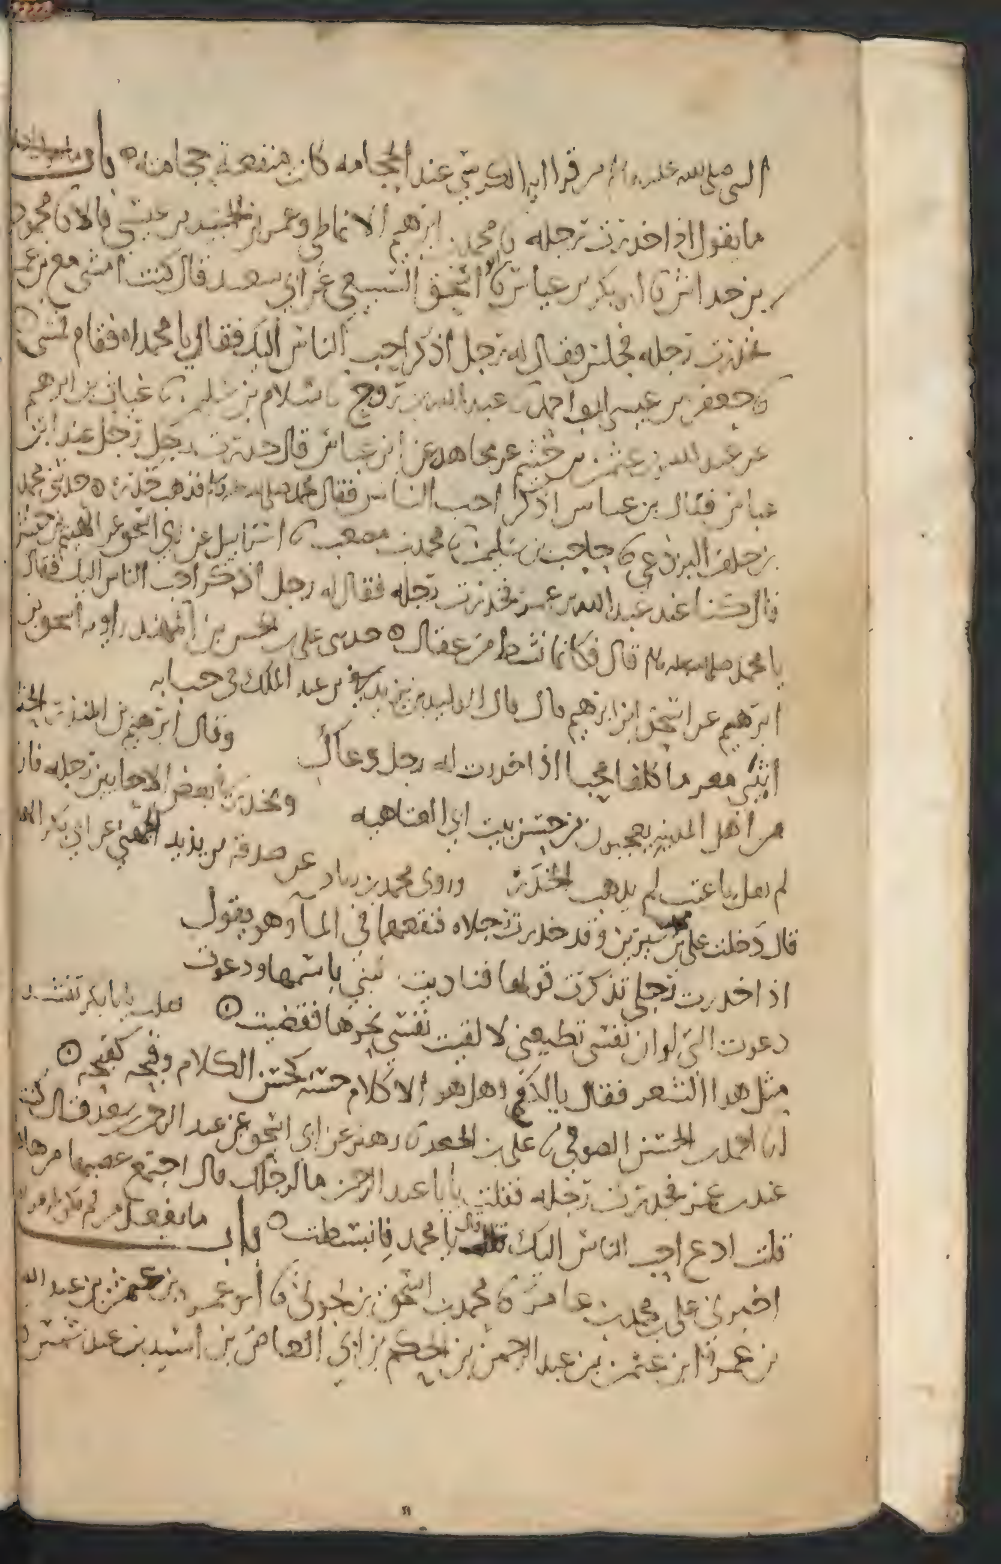 النبي صلى الله عليه وسلم من قرا اية الكرسي عند الحجامه كانت منفعة حجامته باب
ما يقول اذا خدرت رجله نا محمد بن ابرهيم الانماطي وعمر بن الجنيد بن عيسى قالا نا محمود
بن خداش نا ابو بكر بن عياش نا ابو اسحق السبيعي عن ابي سعيد قال كنت امشي مع بن عمر
فخدرت رجله فجلس فقال له رجل اذكر احب الناس اليك فقال يا محمداه فقام فمشى
نا جعفر بن عيسى ابو احمد نا عبد الله بن روح نا سلام بن سليمن نا غياث بن ابرهيم
عن عبد الله بن عثمن بن خثيم عن مجاهد عن ابن عباس قال خدرت رجل رجل عند ابن
عباس فقال بن عباس اذكر احب الناس فقال محمد صلى الله عليه وسلم فذهب خدره حدثني محمد
بن خلف البرذعي نا حاجب بن سليمن نا محمد بن مصعب نا اسرائيل عن ابي اسحق عن الهيثم بن حنش
قال كنا عند عبد الله بن عمر فخدرت رجله فقال له رجل اذكر احب الناس اليك فقال
يا محمد صلى الله عليه وسلم قال فكانما نشط من عقال حدثني علي بن الحسن بن
ابرهيم عن اسحق ابن ابرهيم قال قال الوليد بن يزيد بن عبد الملك في حبابه
اثيبي معرما كلفا محبا اذا خدرت له رجل دعاك وقال ابرهيم بن المنذر
من اهل المدينه يعجبون من حسن بيت ابي العتاهيه وتخدر في بعض الاحايين رجله فان
لم يقل يا عتب لم يذهب الخدر وروى محمد بن زياد عن صدقة بن يزيد الجهني عن ابي بكر
قال دخلت على بن سيرين وقد خدرت رجلاه فنقعهما في المآ وهو يقول
اذا خدرت رجلي تذكرت قولها فناديت لبنى باسمها ودعوت
دعوت التي لو ان نفسي تطيعني لالقيت نفسي نحوها فقضيت فقلت يا ابا بكر تنشد
مثل هذا الشعر فقال يا لكع وهل هو الا كلام حسنه كحسن الكلام وقبحه كقبحه
نا احمد بن الحسن الصوفي نا علي بن الجعد نا زهير عن ابي اسحق عن عبد الرحمن بن سعد قال كنت
عند بن عمر فخدرت رجله فقلت يا ابا عبد الرحمن ما لرجلك قال اجتمع عصبها من هاهنا
قلت ادع احب الناس اليك قال يا محمد فانبسطت باب ما يفعل
اخبرني علي بن محمد بن عامر نا محمد بن اسحق بن نا ابو عمرو بن عثمن بن عبد الله
بن عمرو ابن عثمن بن عبد الرحمن بن الحكم بن ابي العاص بن اسيد بن عبد شمس